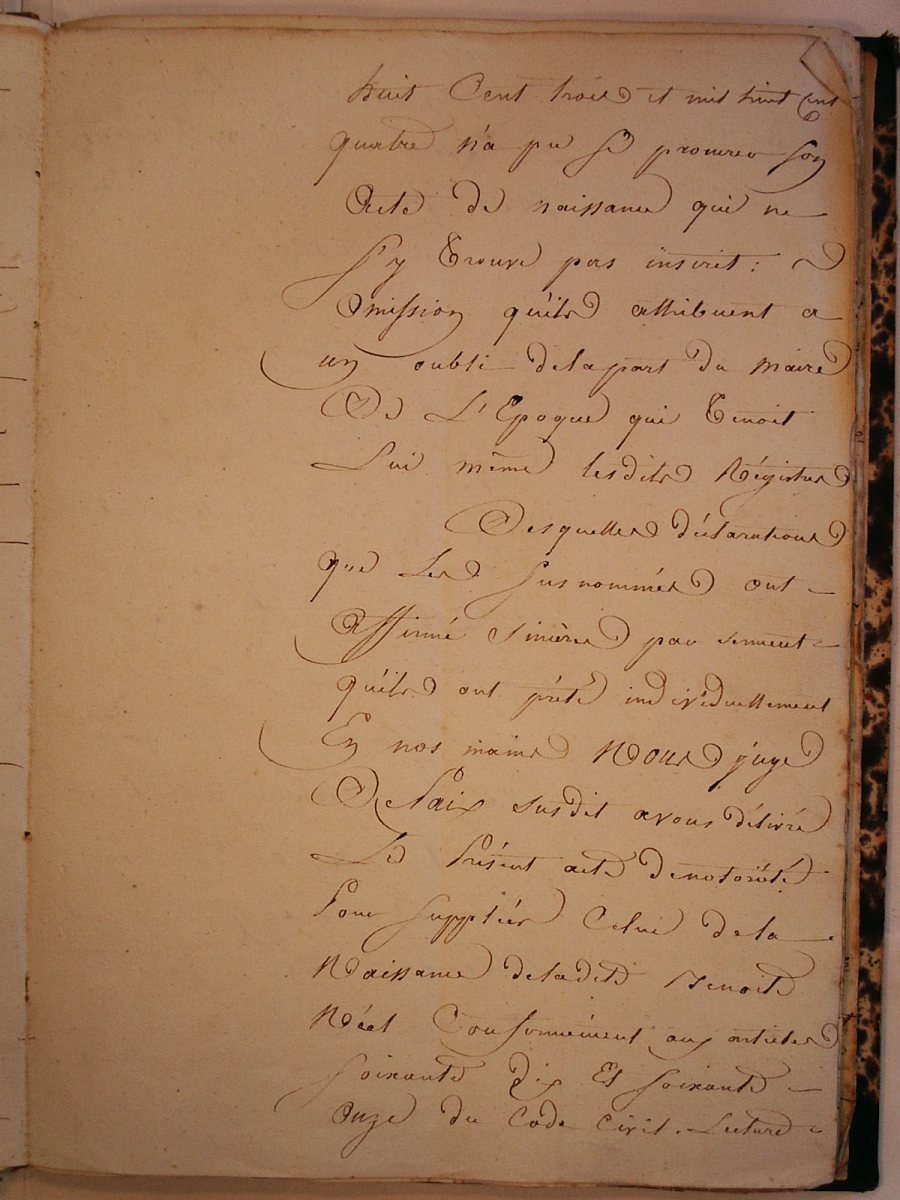 huit Cent trois et mil huit Cent
quatre n'a pu se procurer son
Acte de naissance qui ne
s'y trouve pas inscrit :
Omission qu'ils attribuent a
un oubli de la part du maire
De L'Epoque qui tenoit
Lui même lesdits Régistres
Desquelles déclarations
que Les susnommés ont
affirmé sincères par serment
qu'ils ont prêté individuellement
En nos mains Nous juge
De Paix susdit avons délivré
Le Présent acte de notoriété
Pour suppléer Celui de la
Naissance de ladite Benoite
Réet Conformément aux articles
soixante dix Et soixante
onze du Code Civil. Lecture